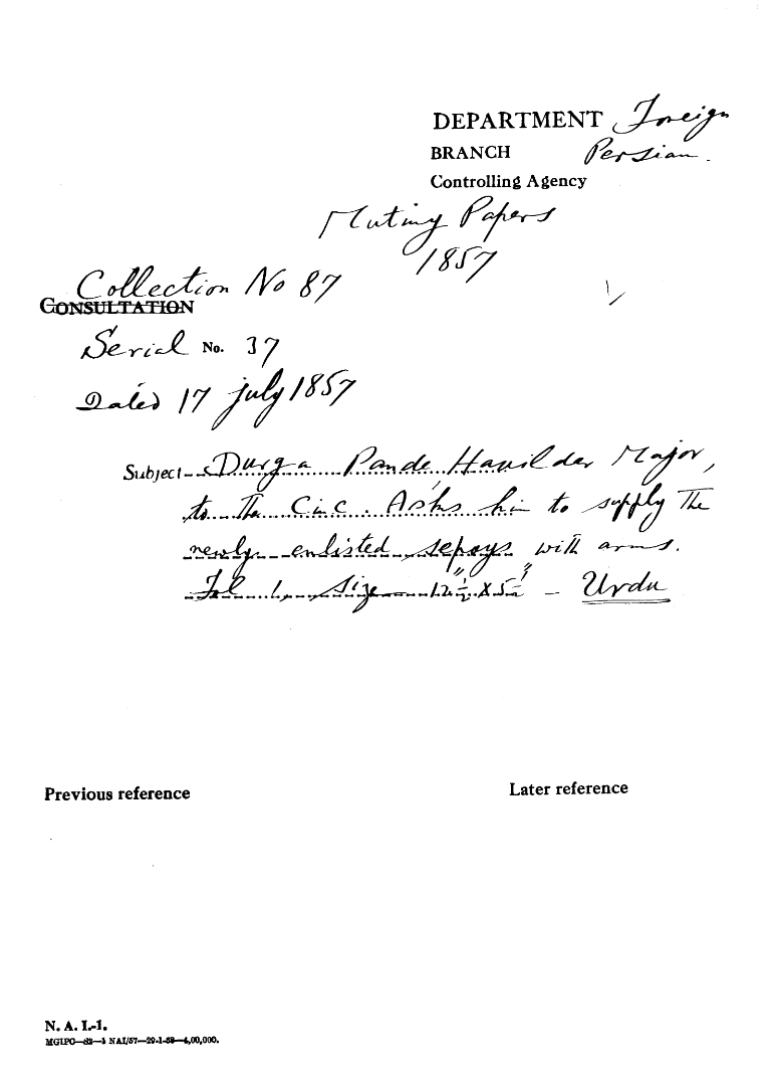 DEPARTMENT Foreign
BRANCH Persian.
Controlling Agency
Mutiny Papers
1857
Collection No 87
CONSULTATION
Serial No. 37
Dated 17 July 1857
Subject Durga Pande, Havildar Major,
to the C in C. Asks him to supply the
newly enlisted sepoys with arms.
Fol 1, size 12½" x 5½" – Urdu
Previous reference
Later reference
N. A. I.-1.
MGIPC—82—5 NAI/57—29-1-58—4,00,000.